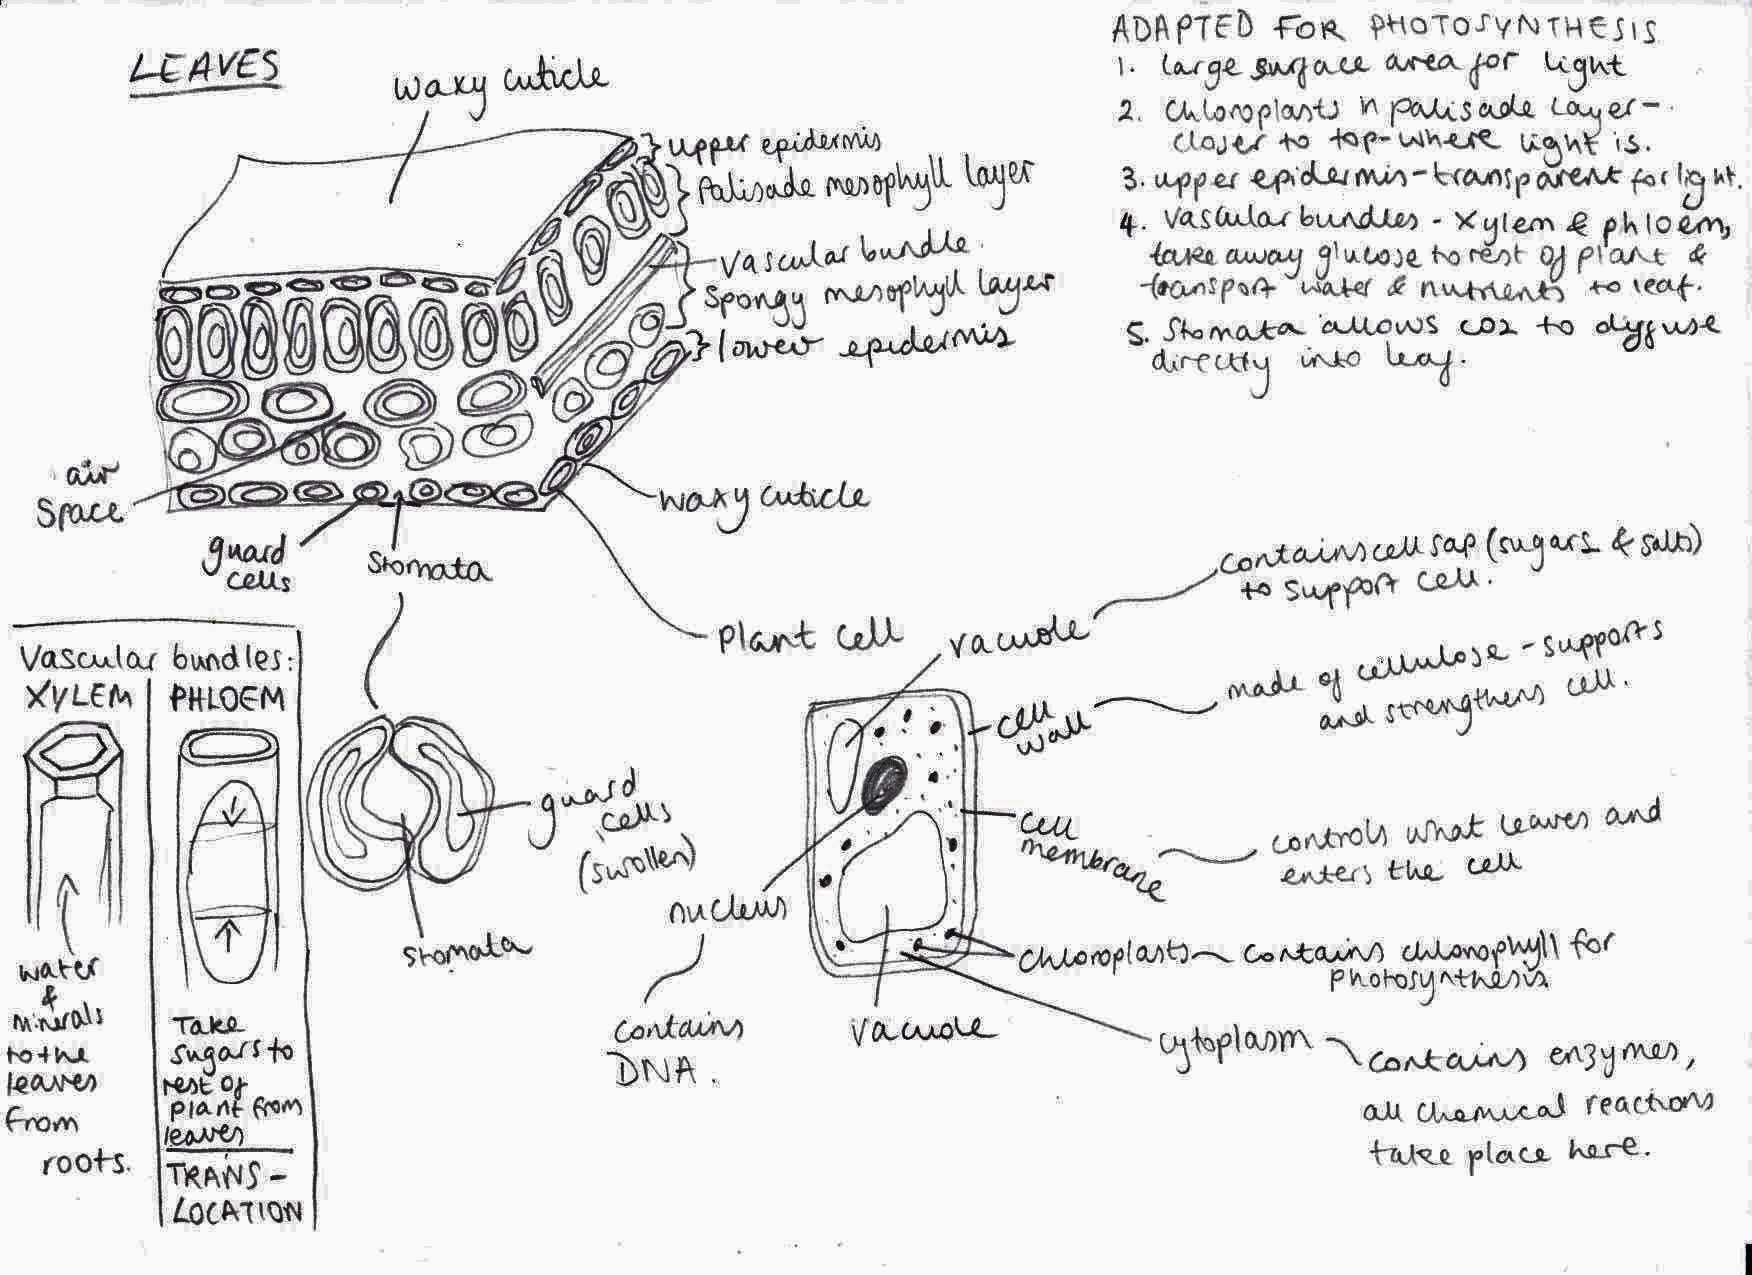 LEAVES
waxy cuticle
upper epidermis
Palisade mesophyll layer
vascular bundle.
spongy mesophyll layer
lower epidermis
air
space
guard
cells
stomata
waxy cuticle
Plant cell
ADAPTED FOR PHOTOSYNTHESIS
1. large surface area for light
2. chloroplasts in palisade layer-
closer to top-where light is.
3. upper epidermis-transparent for light.
4. vascular bundles - xylem & phloem,
take away glucose to rest of plant &
transport water & nutrients to leaf.
5. Stomata allows CO2 to diffuse
directly into leaf.
Vascular bundles:
XYLEM
PHLOEM
water
&
minerals
to the
leaves
from
roots.
Take
sugars to
rest of
plant from
leaves
TRANS-
LOCATION
guard
cells
(swollen)
stomata
vacuole
contains cell sap (sugars & salts)
to support cell.
cell
wall
made of cellulose - supports
and strengthens cell.
cell
membrane
controls what leaves and
enters the cell
nucleus
contains
DNA.
chloroplasts
contains chlorophyll for
photosynthesis
vacuole
cytoplasm
contains enzymes,
all chemical reactions
take place here.